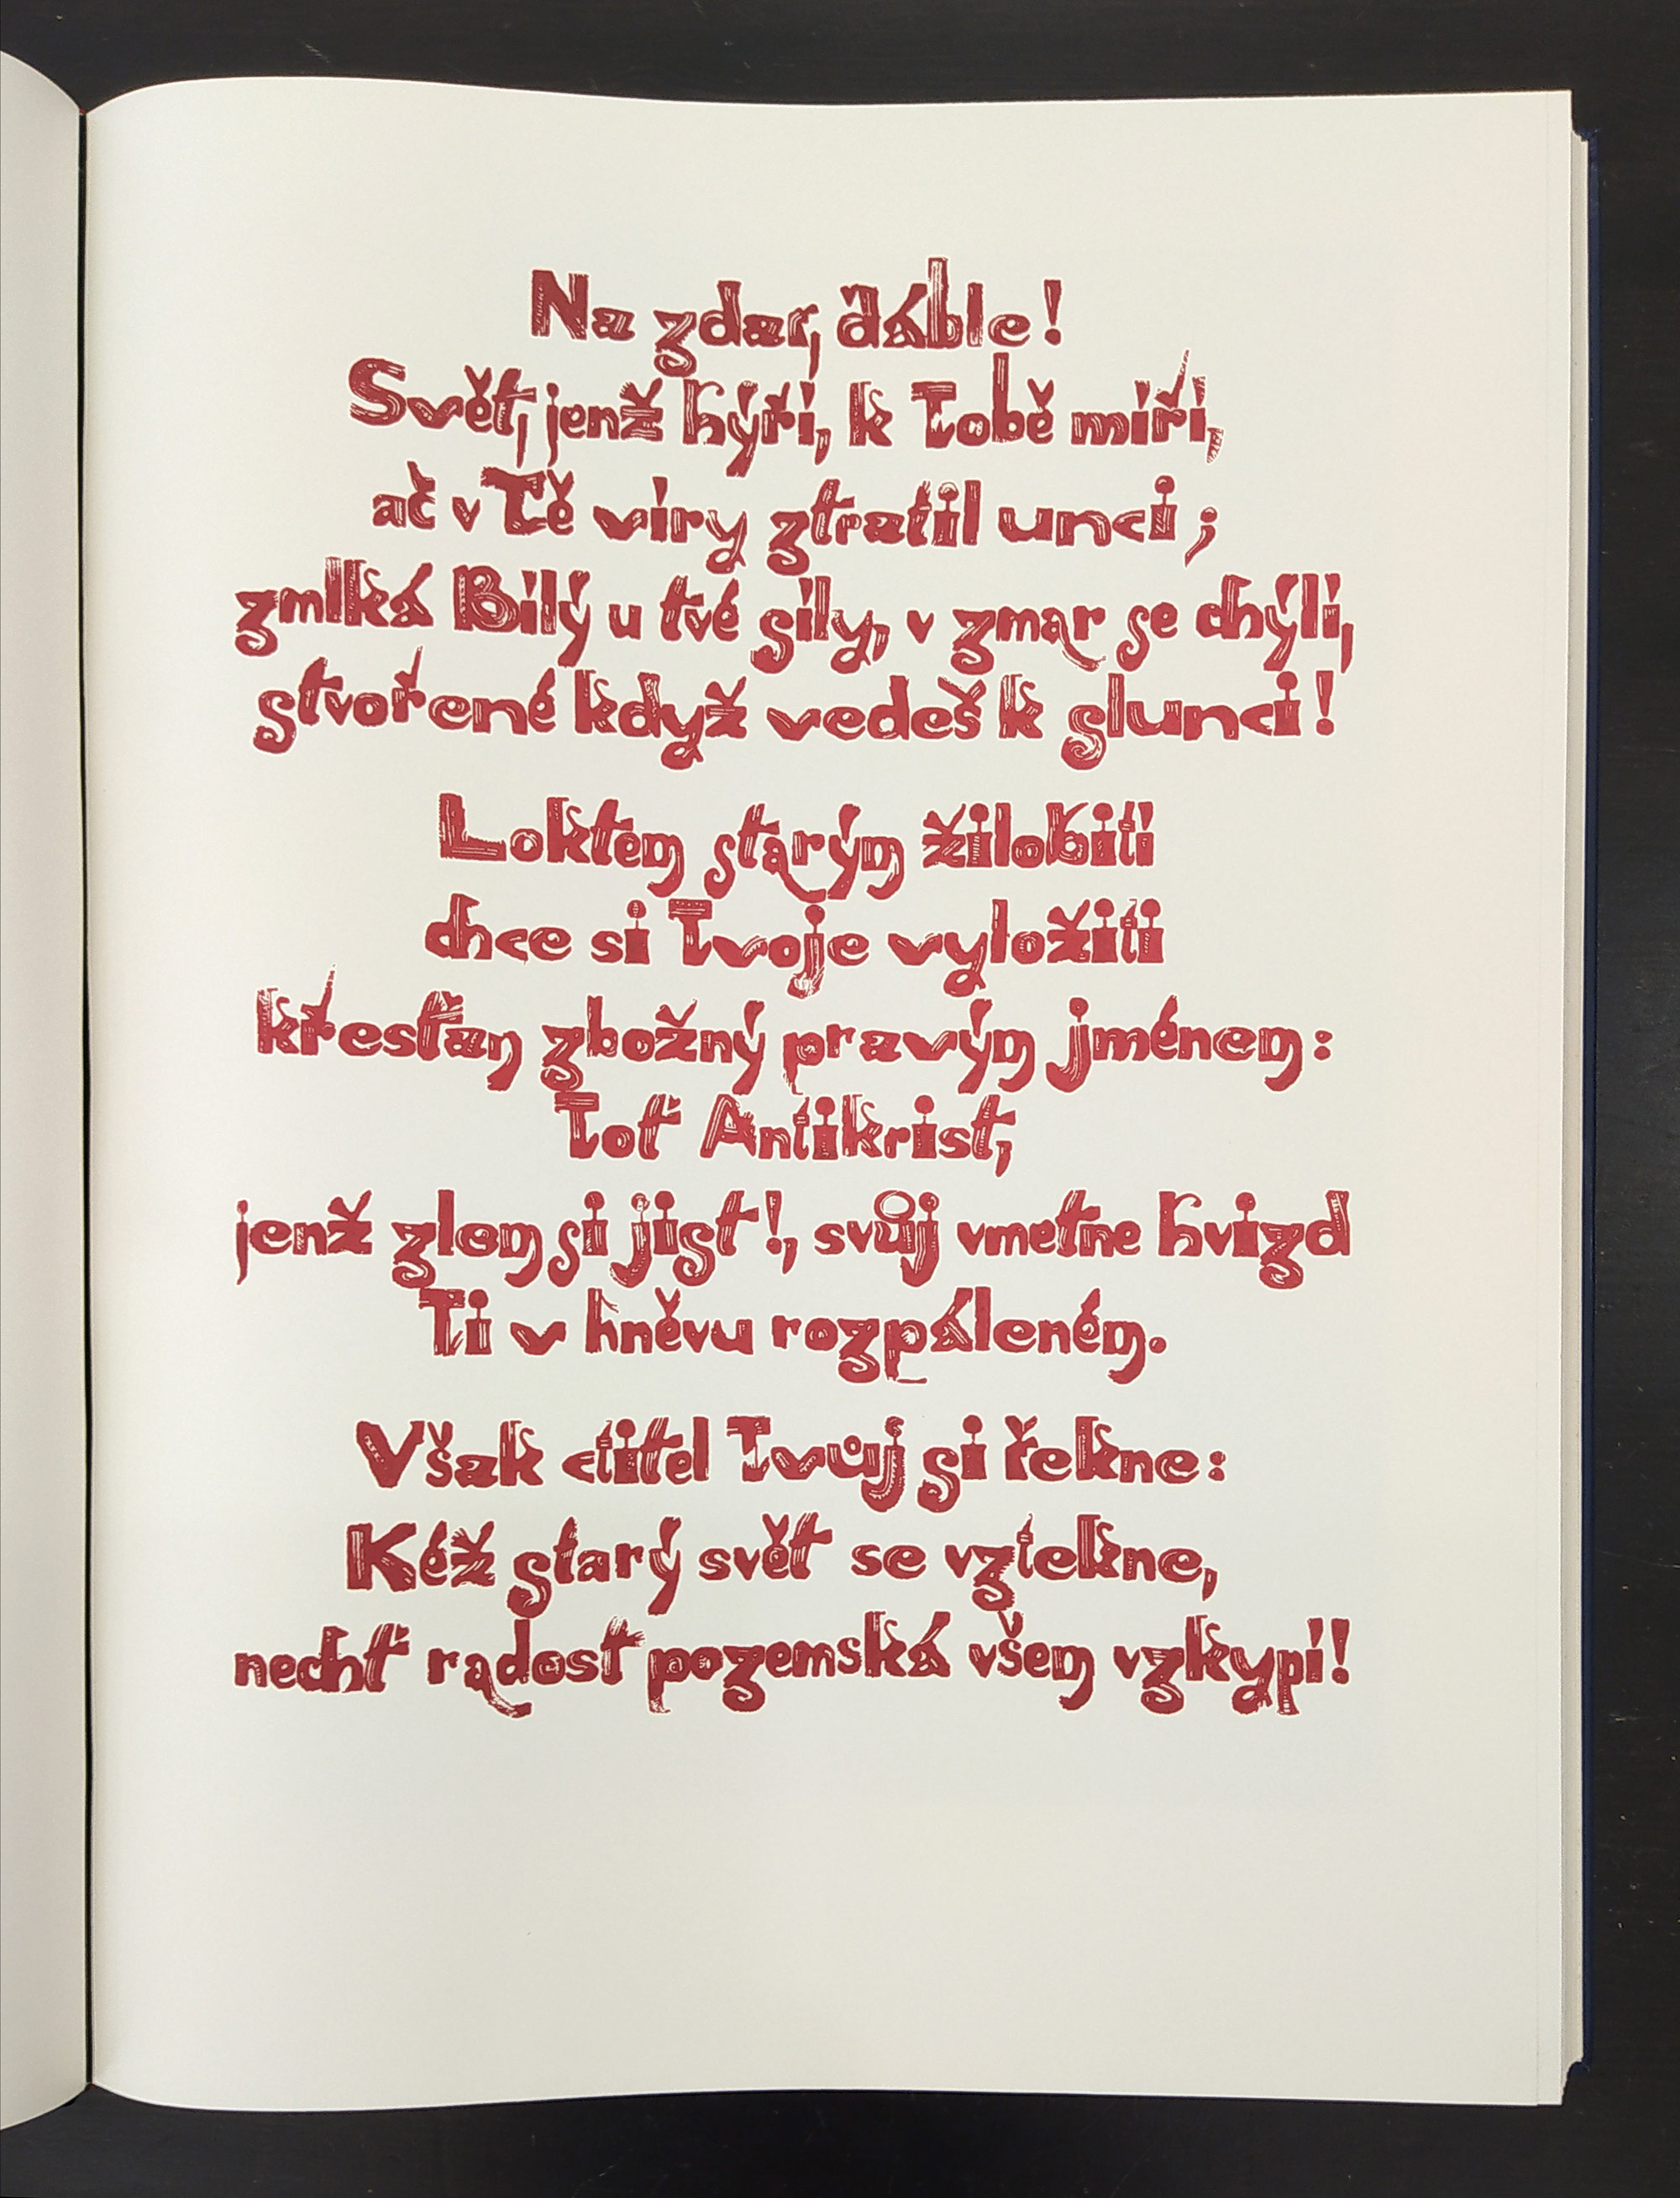 Na zdar, ďáble!
Svět, jenž hýří, k Tobě míří,
ač v Tě víry ztratil unci;
zmlká Bílý u tvé síly, v zmar se chýlí,
stvořené když vedeš k slunci!
Loktem starým žilobití
chce si Tvoje vyložiti
křesťan zbožný pravým jménem:
Toť Antikrist,
jenž zlem si jist!, svůj vmetne hvizd
Ti v hněvu rozpáleném.
Však ctitel Tvůj si řekne:
Kéž starý svět se vztekne,
nechť radost pozemská všem vzkypí!